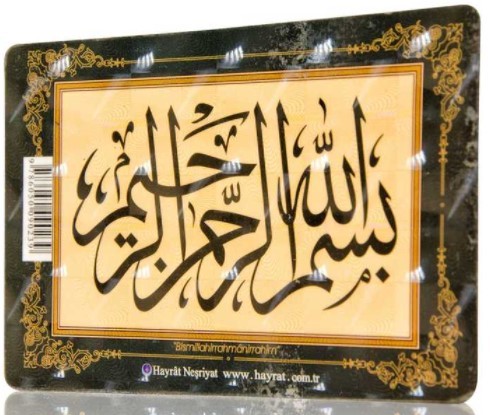 بسم الله الرحمن الرحيم
"Bismillâhirrahmânirrahîm"
Hayrât Neşriyat www.hayrat.com.tr